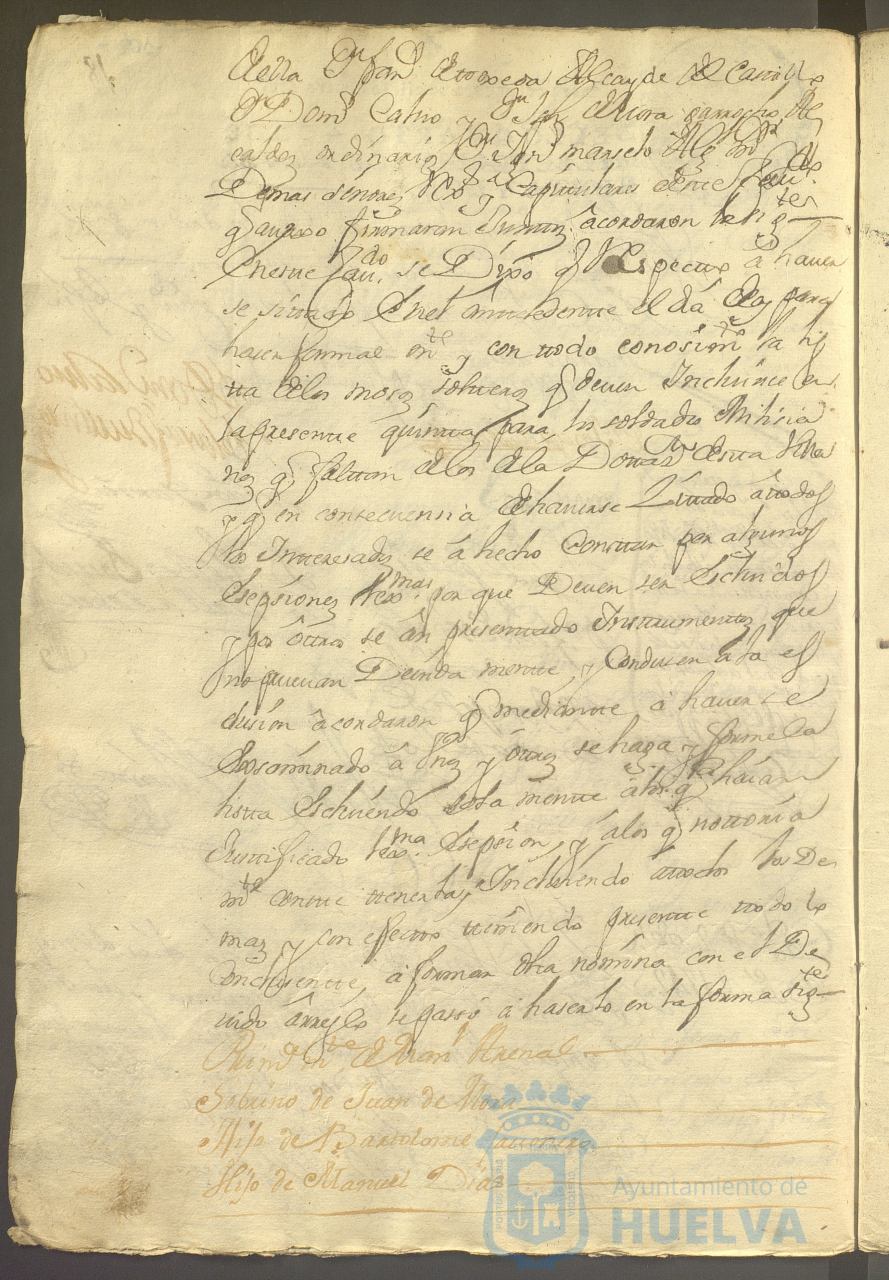 della Dn Juan de Alcayde del Castillo
Dn Domo Calvo y Dn Joph de Mora Al
caldes ordinarios Marselo Algl mor
Demas señores Capitulares deste Cavdo
q avajo firmaran Juntos acordaron lo sigte
En este Cavdo se Dixo q Respecto a haver
se sitado en el antesedente el dia de oy para
haser formal mte y con todo conosimto la lis
ta de los mosos solteros q deven Incluirse en
la presente quinta para los soldados Milisia
nos q faltan de los de la Dottasn desta Villa
y q en consecuensia de haverse Zittado a todos
los Interesados se a hecho Constar por algunos
Esepsiones por que Deven ser Escluidos
y por otros se an presenttado Instrumentos que
no pruevan Devida mente y Conducen a la es
clusion acordaron q mediante a haverse
Exsaminado a unos y otros se haga y forme la
lista Escluiendo sola mente a los q haian
Justificado Esepsion y a los q no
mte conste tenerlas Incluiendo a todos los De
mas y con efecto teniendo presente todo lo
a formar dha nomina con el De
vido arreglo se passo a haserlo en la forma sigte
Primte de Juan Arenal
Sobrino de Juan de Mora
Hijo de Bartolome
Hijo de Manuel Dias
Ayuntamiento de
HUELVA